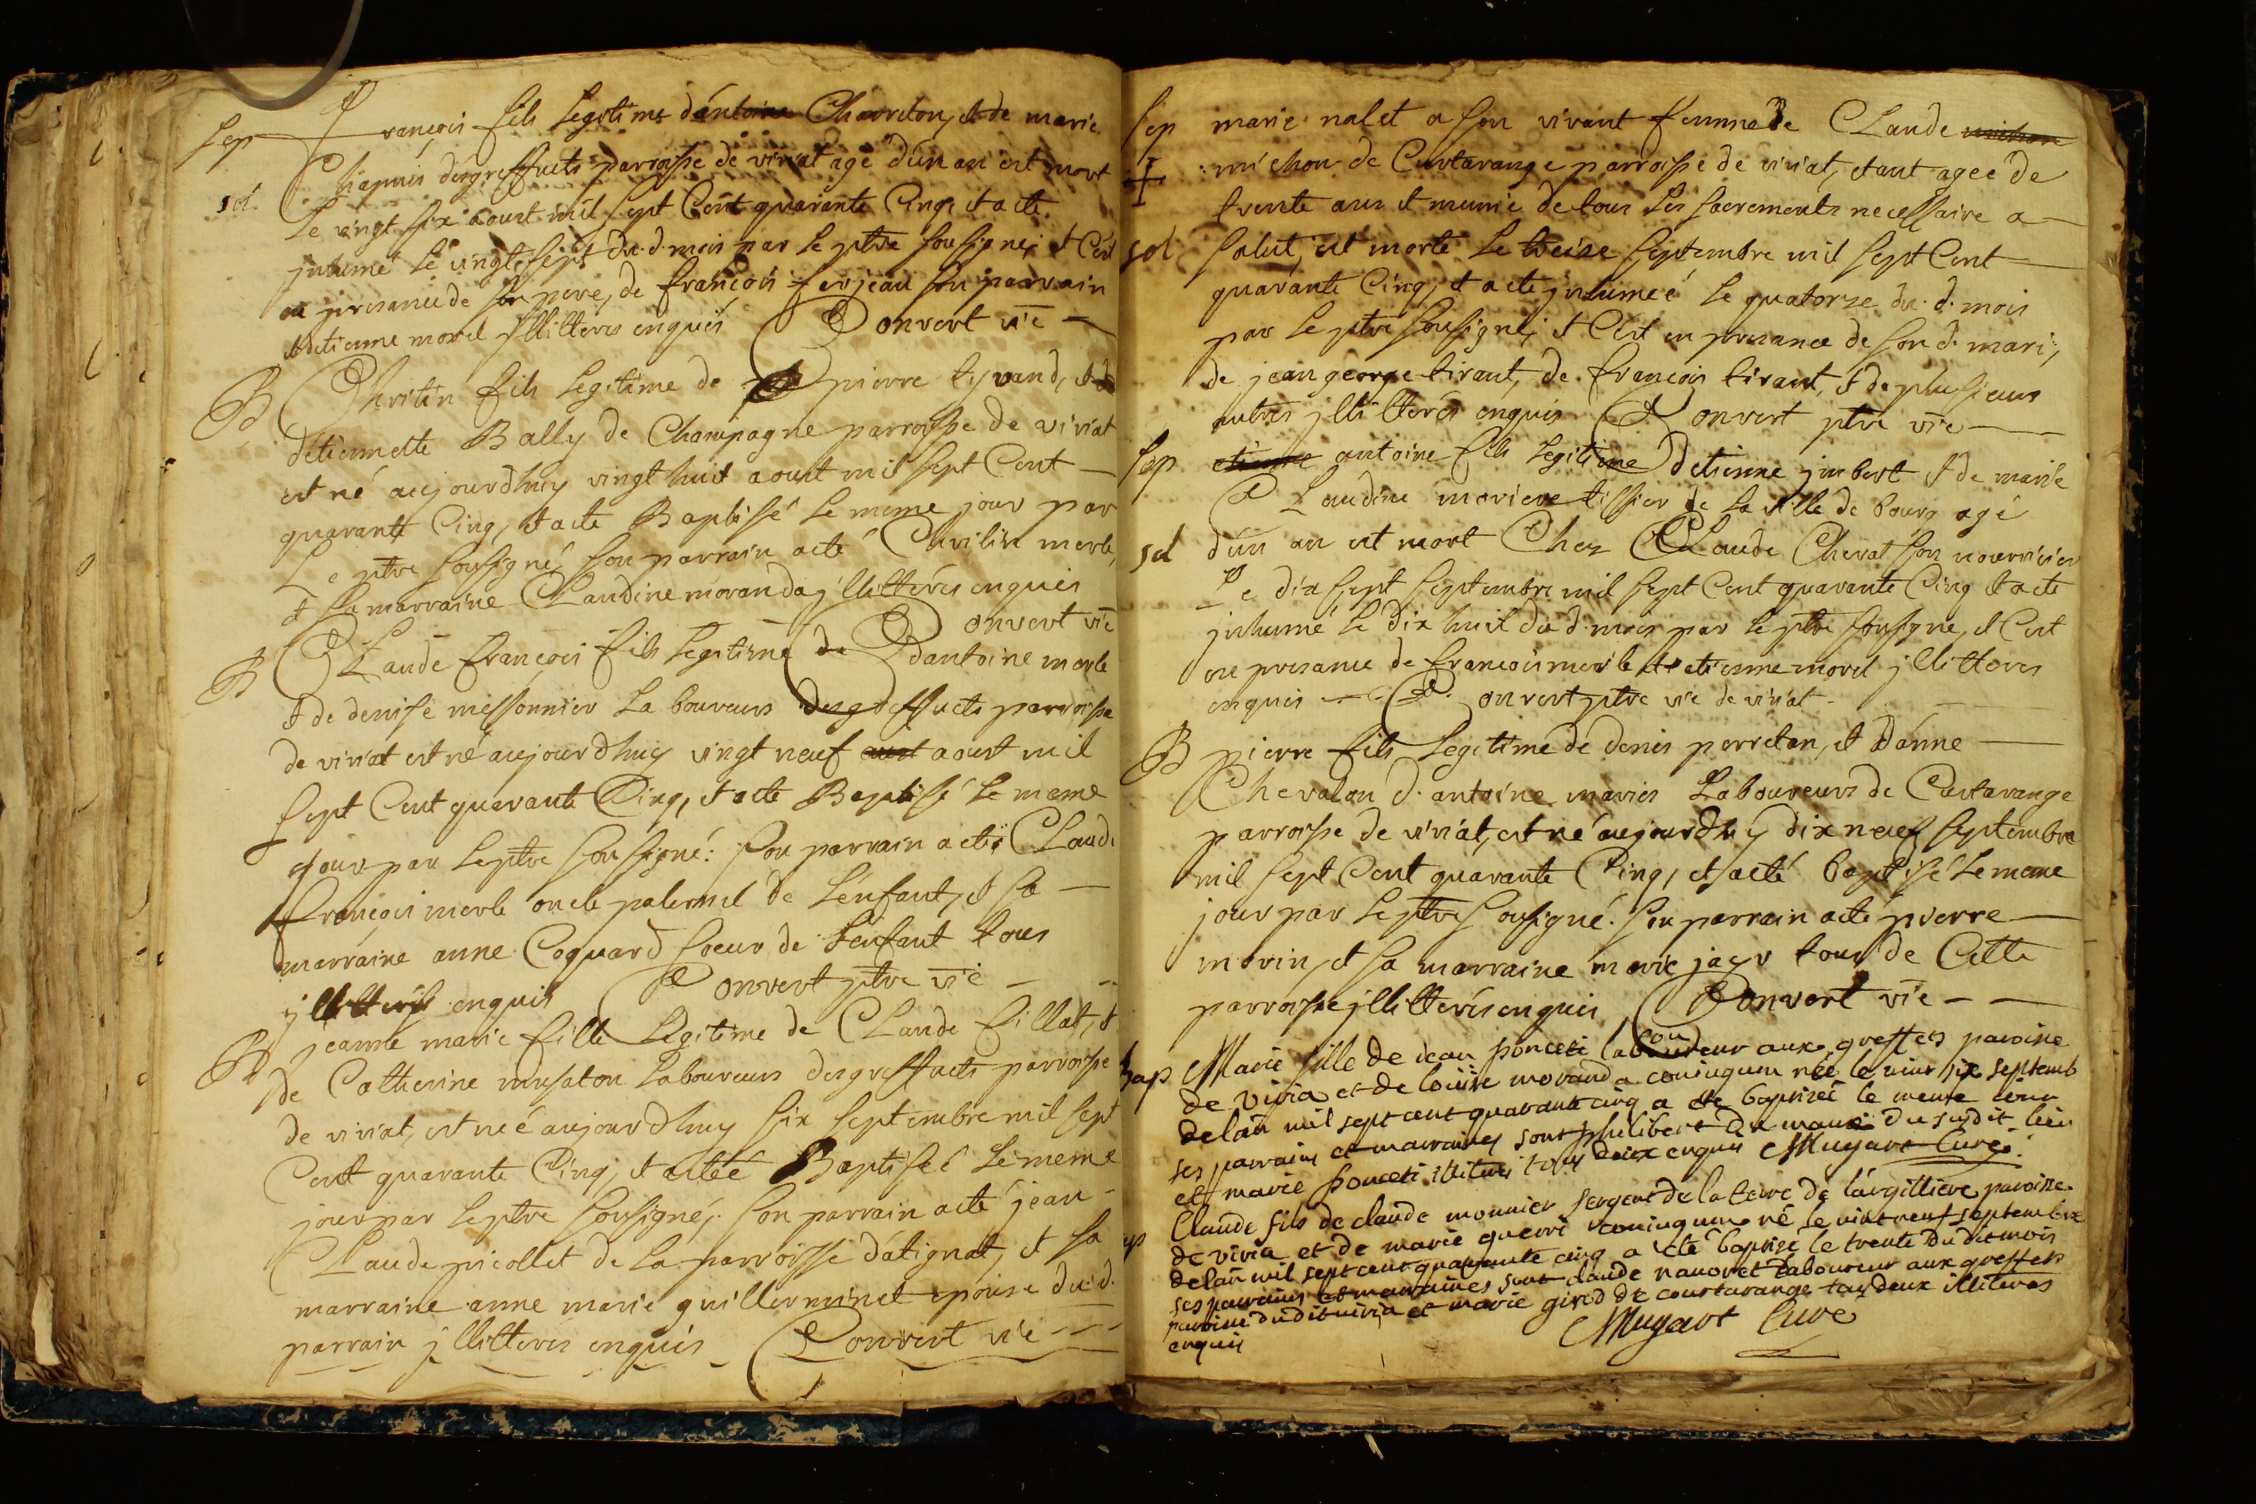 Sep François fils legitime dantoine Charreton, et de marie
Chapuis desgreffiets parroisse de viriat agé dun an est mort
sd. le vingt six aoust mil sept Cent quarante Cinq et a eté
jnhumé le vingt sept du d. mois par le ptre sousigné, et C'est
en presance de son pere, de françois ferjean son parrain
et detienne morel jllitterés enquis Convert vic̄
B Christin fils legitime de pierre tyrand, et
detiennette Bally de Champagne parroisse de viriat
est né aujourdhuy vingt huit aoust mil sept Cent
quarante Cinq, et a eté Baptisé le meme jour par
Le ptre sousigné, son parrain a eté Christin merle,
et sa marraine Claudine moranda jllitterés enquis
Convert vic̄
B Claude françois fils legitime de dantoine merle
et de denise messonnier laboureurs desgreffiets parroisse
de viriat est né aujourdhuy vingt neuf aoust mil
sept Cent quarante Cinq, et a eté Baptisé le meme
jour par le ptre sousigné: son parrain a eté Claude
françois merle oncle paternel de L'enfant, et sa
marraine anne Coquard soeur de L'enfant tous
jllitterés enquis Convert ptre vic̄
B jeanne marie fille Legitime de Claude fillat, et
de Catherine musaton Laboureurs desgreffiets parroisse
de viriat, est néé aujourdhuy six septembre mil sept
Cent quarante Cinq, et a eté Baptiséé le meme
jour par le ptre sousigné, son parrain a eté jean
Claude picollet de la parroisse dátignat, et sa
marraine anne marie guillerminet epouse du d.
parrain jllitterés enquis Convert vic̄
Sep marie nalet a son vivant femme de Claude michon
michon de Curtarange parroisse de viriat, etant ageé de
trente ans et munie de tous les sacrements necessaire a
sd salut, est morte le treize septembre mil sept Cent
quarante Cinq, et a eté jnhumeé le quatorze du d. mois
par le ptre sousigné, et C'est en presance de son d. mari,
de jean george tirant, de françois tirant, et de plusieurs
autres jllitterés enquis Convert ptre vic̄
Sep etienne antoine fils legitime detienne jmbert et de marie
Claudine tissier de la ville de bourg agé
sd dun an est mort Chez Claude Chevat son nourricier
Le dix sept septembre mil sept Cent quarante Cinq et a eté
jnhumé le dix huit du d. mois par le ptre sousigné, et C'est
en presance de françois merle et etienne morel jllitterés
enquis Convert ptre vic̄ de viriat
B pierre fils legitime de denis perretan, et dánne
Chevalon d. antoine mariés Laboureurs de Curtarange
parroisse de viriat, est né aujourdhuy dix neuf septembre
mil sept Cent quarante Cinq, et a eté baptisé le meme
jour par le ptre sousigné. son parrain a eté pierre
morin, et sa marraine marie jayr tous de Cette
parroisse jllitterés enquis Convert vic̄
bap Marie fille de jean ponceti laboureur aux greffets paroisse
de viria et de louise moranda coniugum née le vint six septemb
delan mil sept cent quarante cinq a ete baptisée le meme jour
ses parrains et marraines sont philibert du susdit lieu
et marie ponceti illiteres tous deux enquis Mugart Curé
Claude fils de claude monnier sergent de la terre de largilliere paroisse
de viria et de marie querri coniugum né le vint neuf septembre
delan mil sept cent quarante cinq a eté baptisé le trente dudit mois
ses parrains et marraines sont claude ravoret laboureur aux greffets
paroisse dudit viria et marie girod de courtarange tous deux illiteres
enquis Mugart Curé